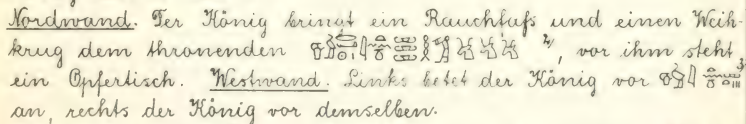 Nordwand. Der König bringt ein Rauchfaß und einen Weih-
krug dem thronenden ²⁾, vor ihm steht
ein Opfertisch. Westwand. Links betet der König vor
an, rechts der König vor demselben.